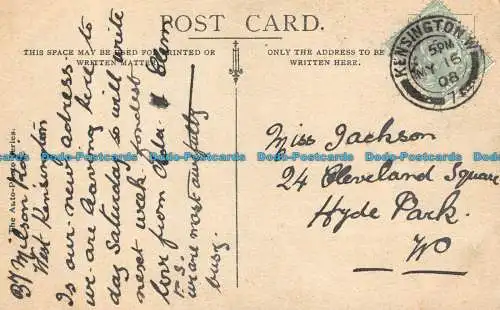 POST CARD.
THIS SPACE MAY BE USED FOR PRINTED OR
WRITTEN MATTER
ONLY THE ADDRESS TO BE
WRITTEN HERE.
KENSINGTON. W
5 PM
MY 15
08
The Auto-Photo Series.
West Kensington
Is our new adress
we are leaving here to
day Saturday so will write
next week. fondest
love from
P.S.
we are most awfully
busy.
Miss Jackson
24 Cleveland Square
Hyde Park.
W
Dodo-Postcards Dodo-Postcards Dodo-Postcards Dodo-Postcards